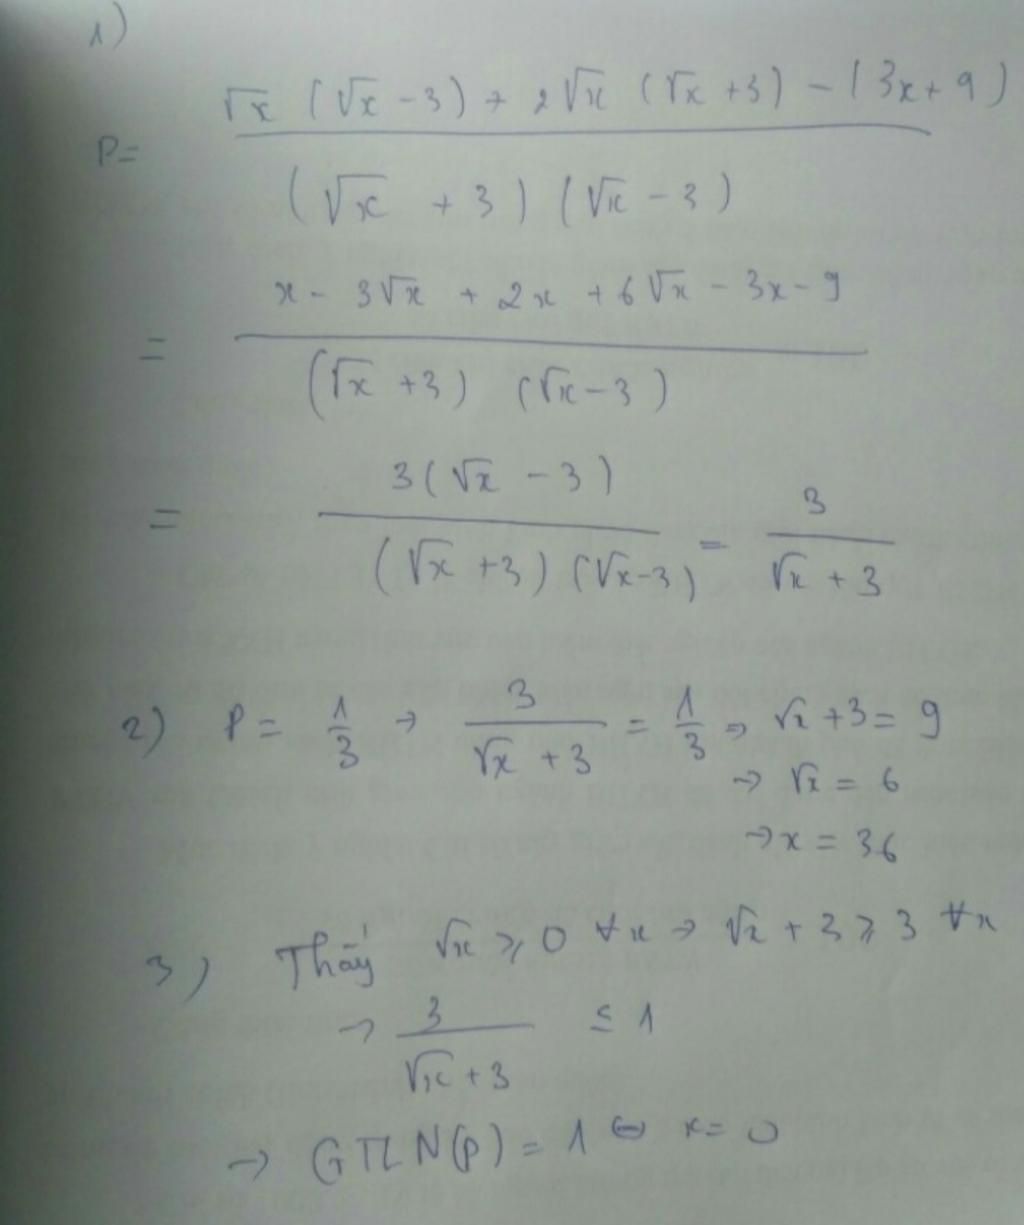 1)
P = \frac{\sqrt{x} (\sqrt{x} - 3) + 2\sqrt{x} (\sqrt{x} + 3) - (3x + 9)}{(\sqrt{x} + 3) (\sqrt{x} - 3)}
= \frac{x - 3\sqrt{x} + 2x + 6\sqrt{x} - 3x - 9}{(\sqrt{x} + 3) (\sqrt{x} - 3)}
= \frac{3(\sqrt{x} - 3)}{(\sqrt{x} + 3) (\sqrt{x} - 3)} = \frac{3}{\sqrt{x} + 3}
2) P = \frac{1}{3} → \frac{3}{\sqrt{x} + 3} = \frac{1}{3} → \sqrt{x} + 3 = 9
→ \sqrt{x} = 6
→ x = 36
3) Thấy \sqrt{x} ⩾ 0 ∀x → \sqrt{x} + 3 ⩾ 3 ∀x
→ \frac{3}{\sqrt{x} + 3} ≤ 1
→ GTLN(P) = 1 ⇔ x = 0